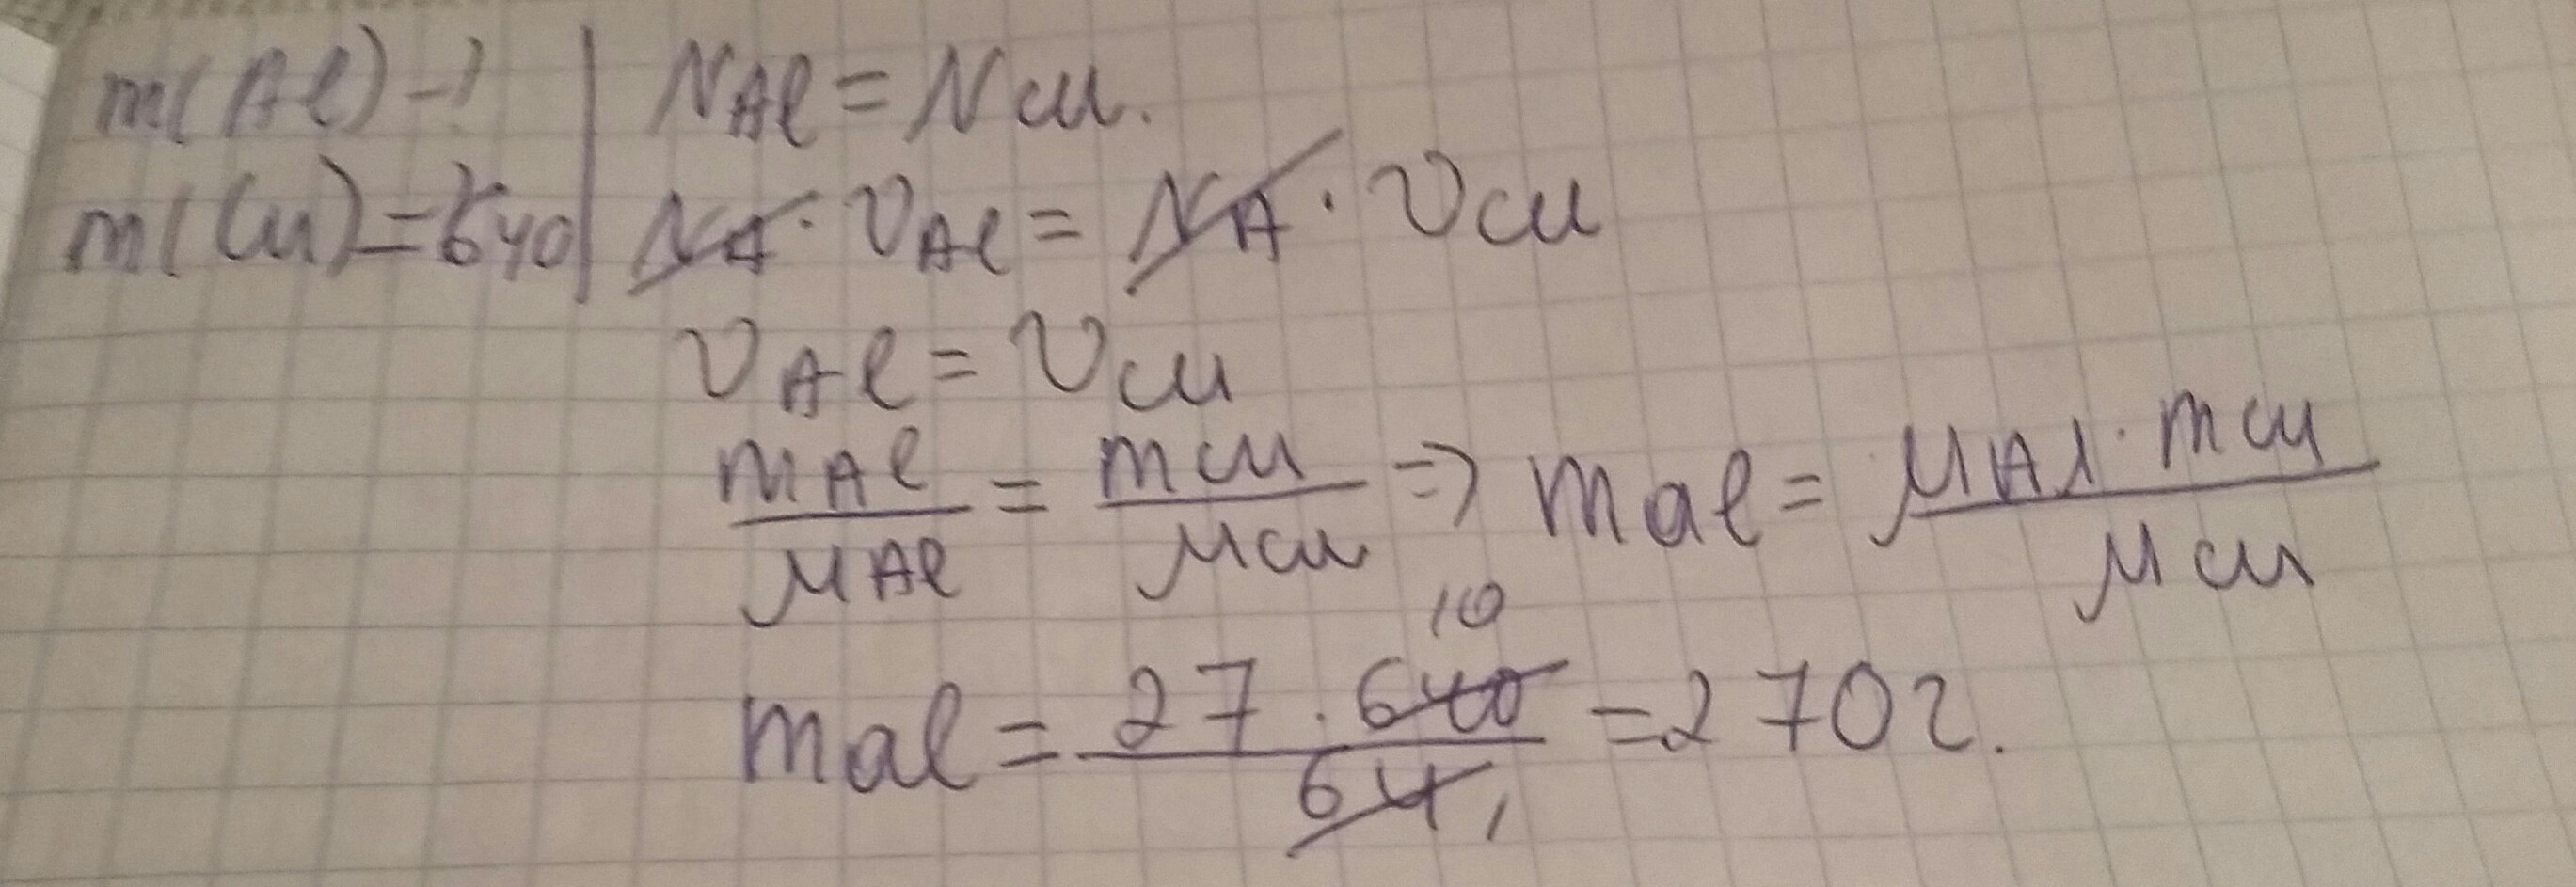 m(Al) - ?
m(Cu) = 640
N Al = N Cu.
NA · ν Al = NA · ν Cu
ν Al = ν Cu
m Al / μ Al = m Cu / μ Cu => m al = μ Al · m Cu / μ Cu
10
m al = 27 · 640 / 64 1 = 270 г.